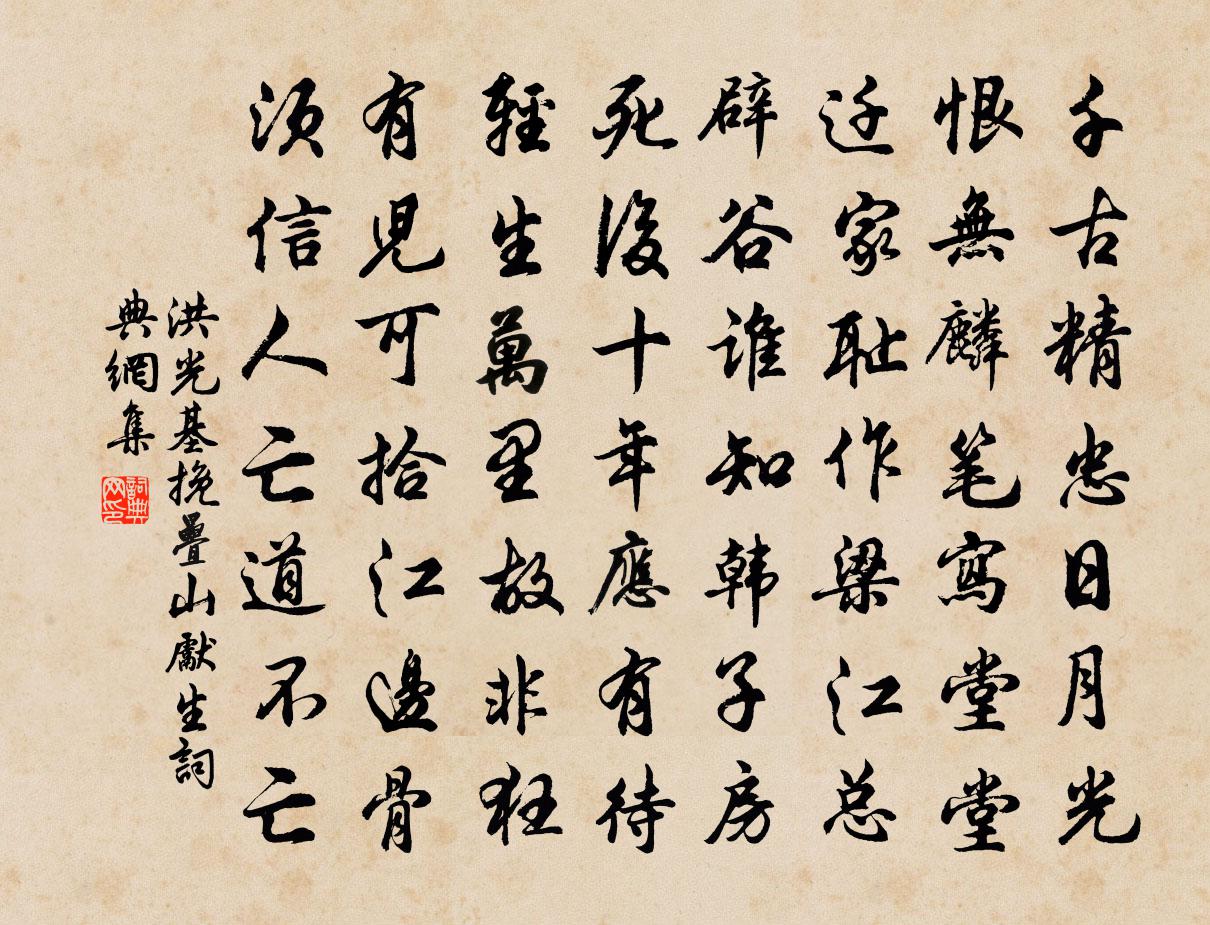 千古精忠日月光
恨無麟笔寫堂堂
迁家耻作梁江总
辟谷谁知韩子房
死後十年應有待
輕生萬里故非狂
有児可拾江邊骨
须信人亡道不亡
洪光基挽疊山獻生詞
典網集
詞典网印